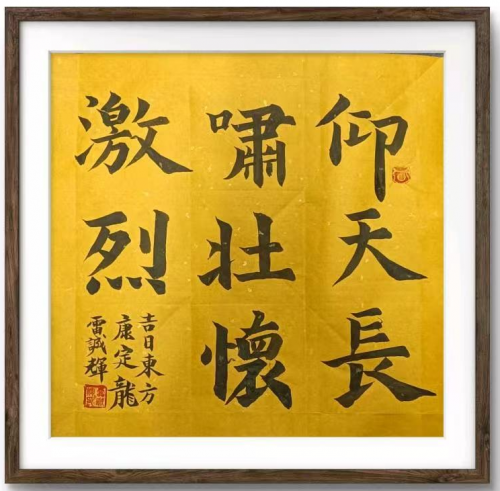 仰天長
嘯壯懷
激烈
吉日東方
康定龍
雷誠輝